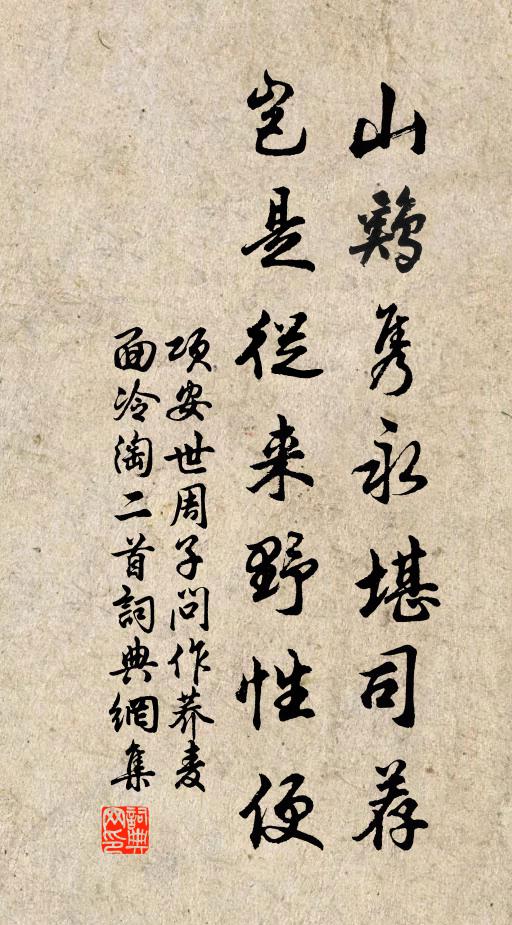 山鷄隽永堪司荐
岂是從来野性便
项安世周子问作荞麦
面冷淘二首詞典網集
詞典
网印